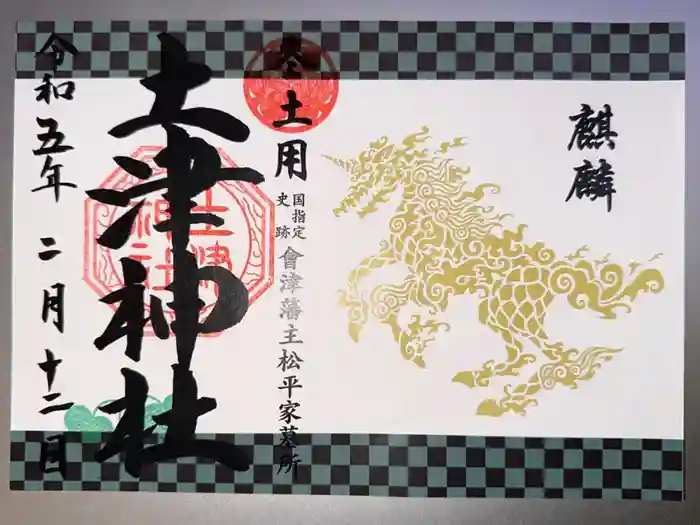 麒麟
冬土用
国指定
史跡
會津藩主松平家墓所
土津神社
土津
神社
令和五年 二月十二日